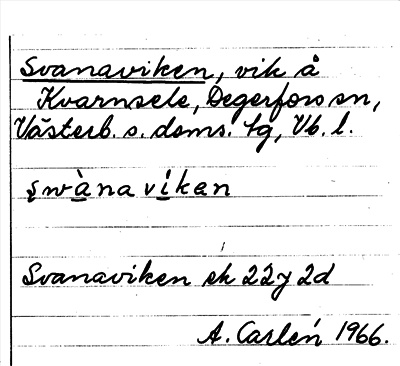 Svanaviken, vik å
Kvarnsele, Degerfors sn,
Västerb. s. doms. tg, Vb. l.
swàna víkan
Svanaviken ek 22y 2d
A. Carlén 1966.